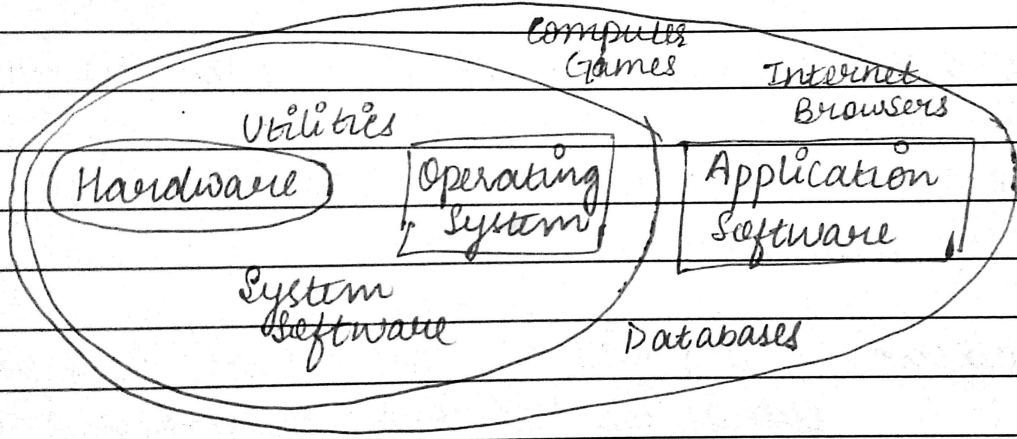 Computer
Games
Internet
Browsers
Utilities
Hardware
Operating
System
Application
Software
System
Software
Databases